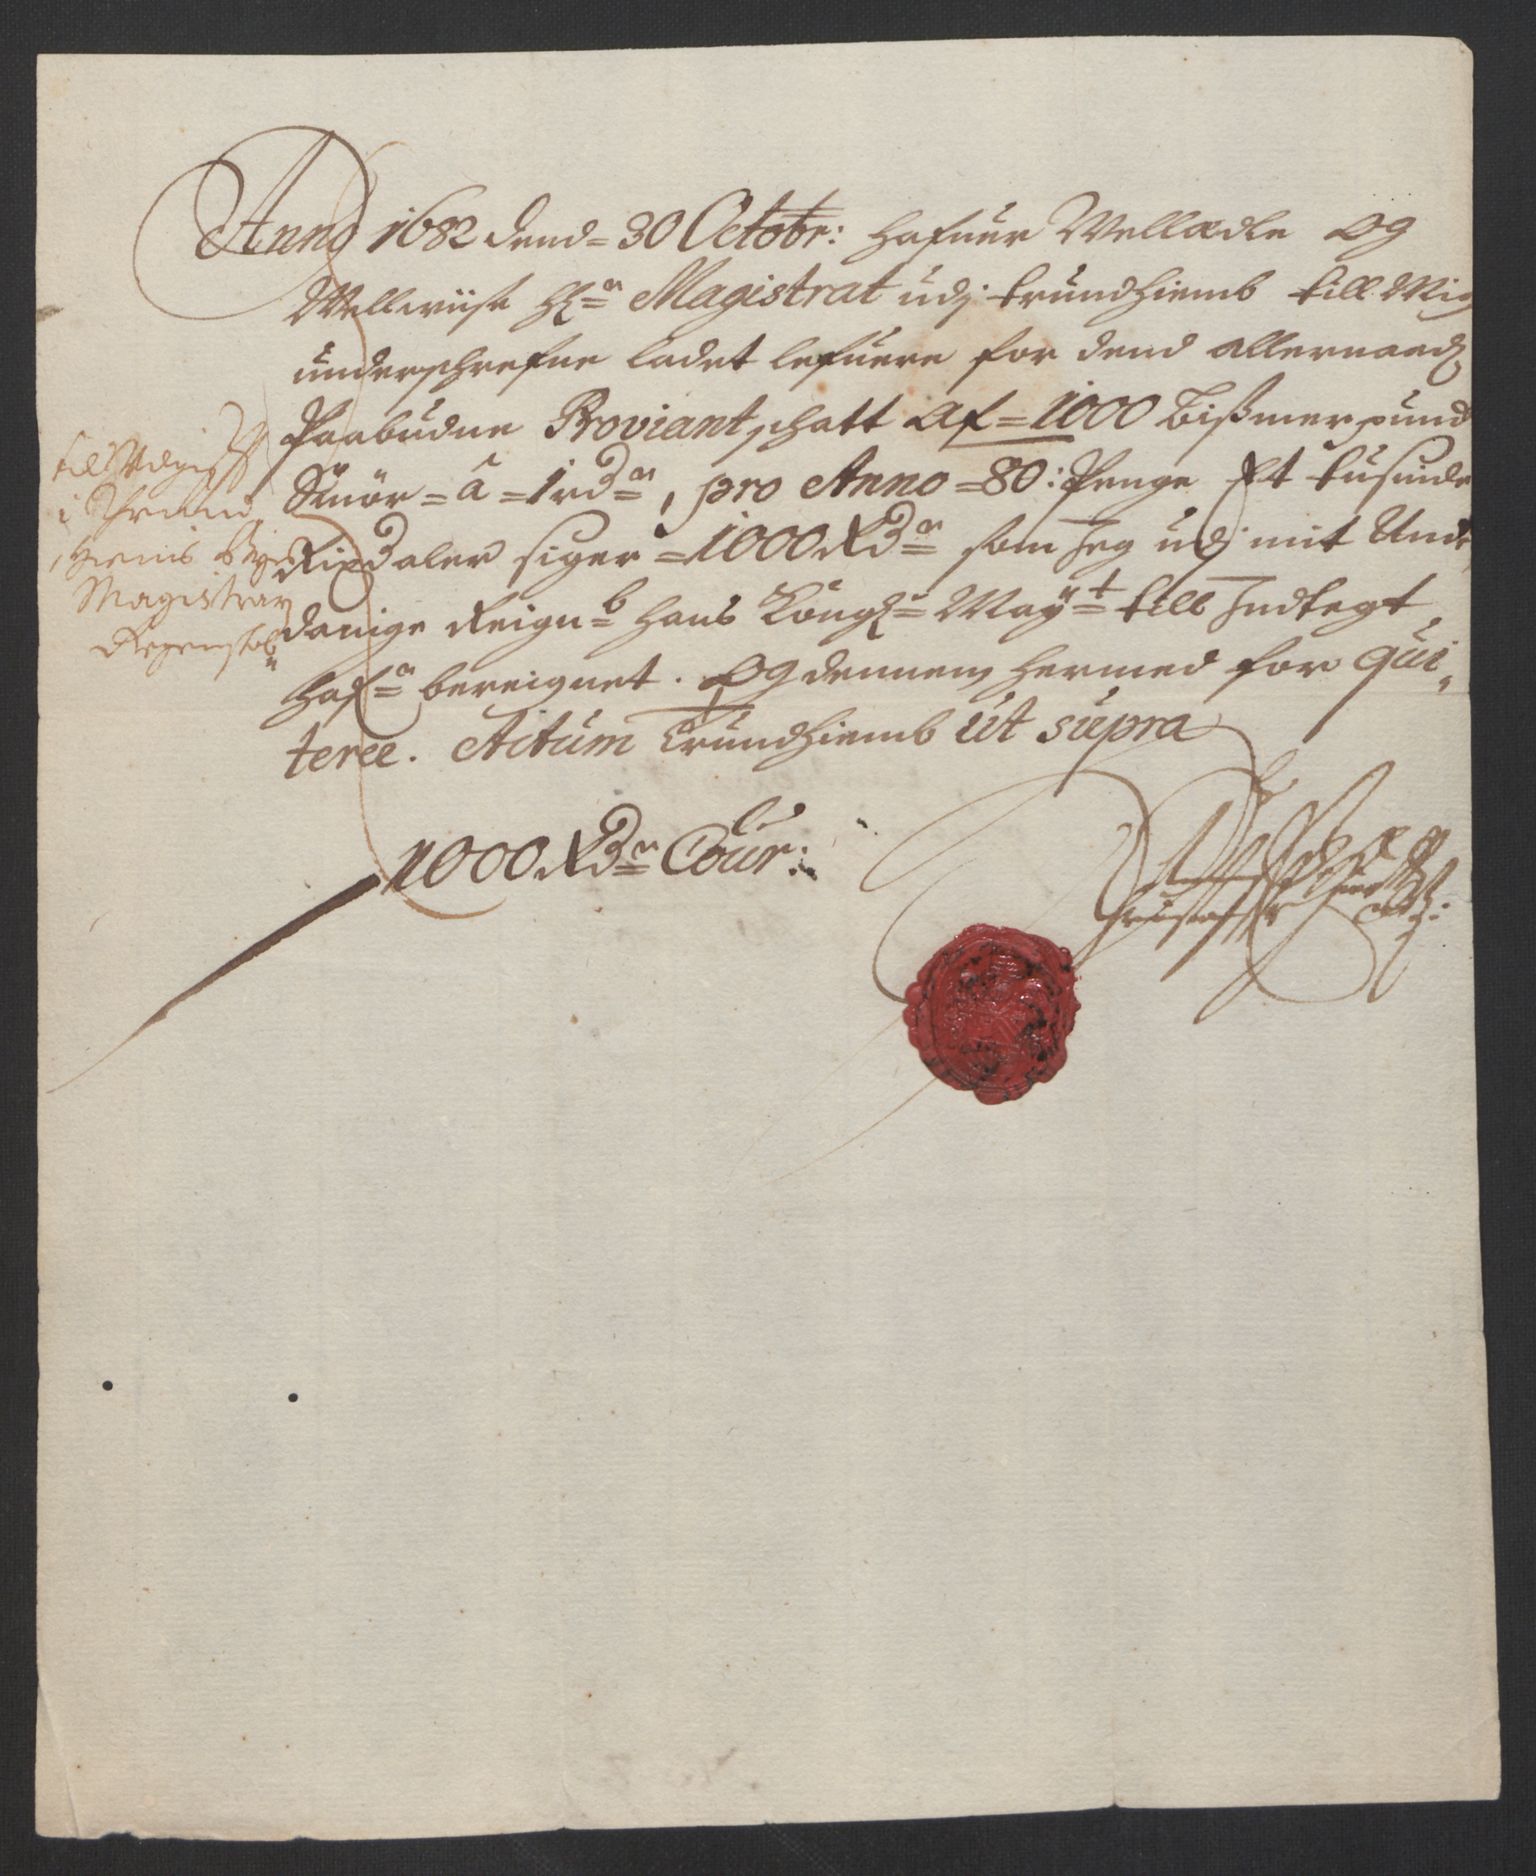 Anno 1682 dend = 30 Octobr: hafuer Wellædle Og
Wellwiise Hr Magistrat udj Trundhiemb till Mig
underschrefne ladet lefuere for dend allernaadst
Paabudne Proviant schatt Af = 1000 Bißmerpund
Smör = â = 1 rdr, pro Anno = 80: Penge Et tusinde
Rixdaler siger = 1000 Rdr som Jeg udj mit Under
danige Reignb hans Kongl May:t till Indtegt
hafr bereignet. Og dennem hermed for qui-
terer. Actum Trundhiemb Ut supra
1000 Rdr Cour:
i Thrund
hiems byes
Magistrat
Regensk